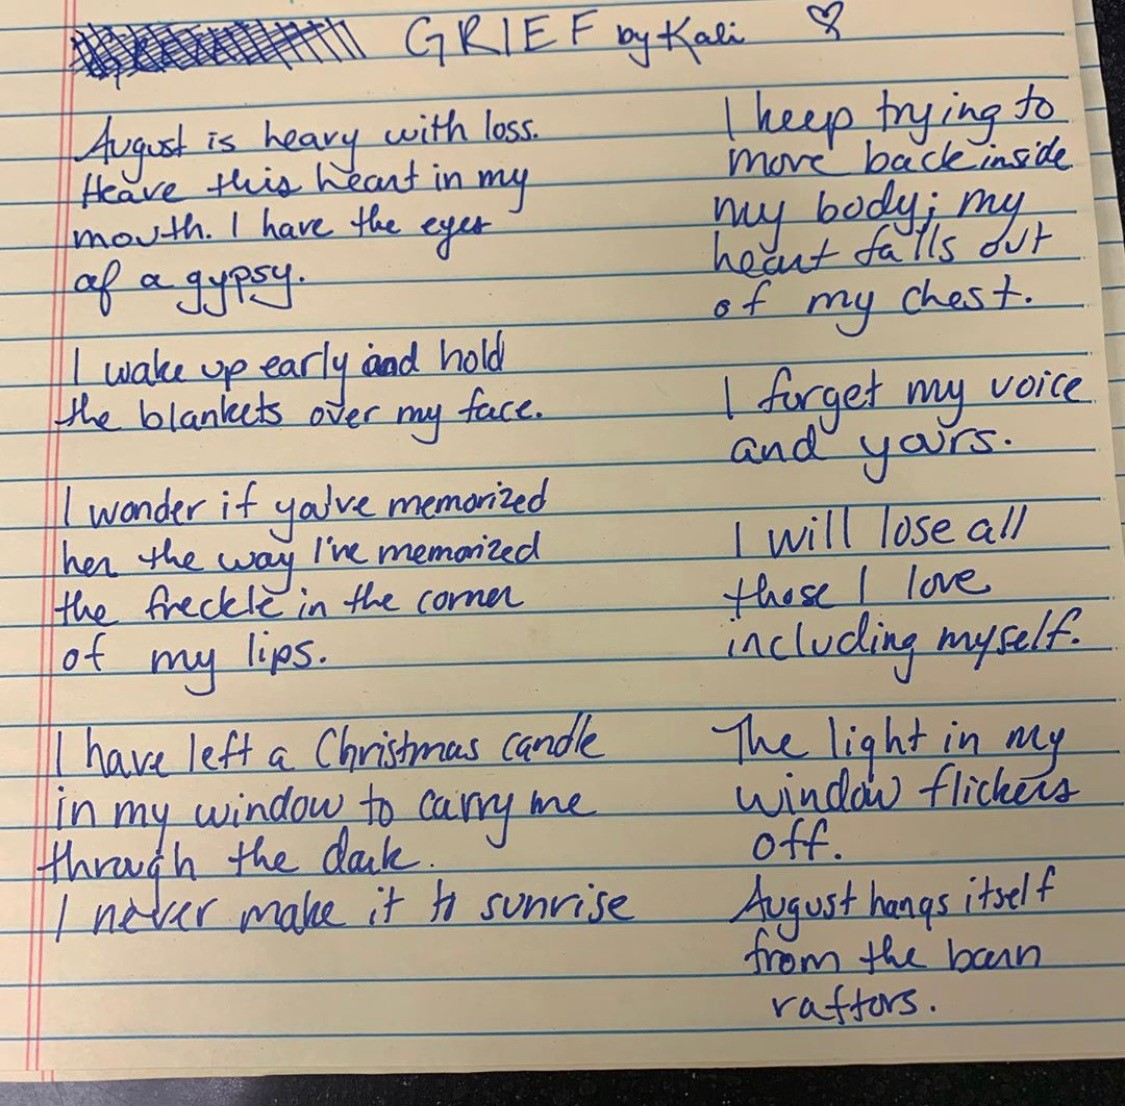 GRIEF by Kali
August is heavy with loss.
Heave this heart in my
mouth. I have the eyes
of a gypsy.
I wake up early and hold
the blankets over my face.
I wonder if you've memorized
her the way I've memorized
the freckle in the corner
of my lips.
I have left a Christmas candle
in my window to carry me
through the dark.
I never make it to sunrise
I keep trying to
move back inside
my body; my
heart falls out
of my chest.
I forget my voice
and yours.
I will lose all
those I love
including myself.
The light in my
window flickers
off.
August hangs itself
from the barn
raftors.